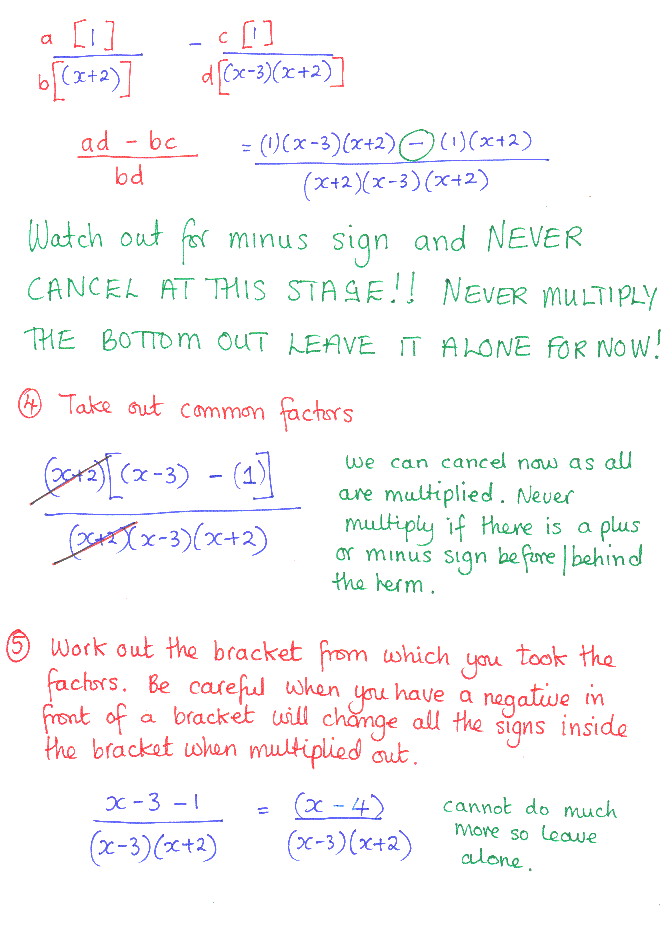 a [1] - c [1]
b [(x+2)] d [(x-3)(x+2)]
ad - bc = (1)(x-3)(x+2) - (1)(x+2)
bd (x+2)(x-3)(x+2)
Watch out for minus sign and NEVER
CANCEL AT THIS STAGE!! NEVER MULTIPLY
THE BOTTOM OUT LEAVE IT ALONE FOR NOW!
④ Take out common factors
(x+2)[(x-3) - (1)]
(x+2)(x-3)(x+2)
we can cancel now as all
are multiplied. Never
multiply if there is a plus
or minus sign before/behind
the term.
⑤ Work out the bracket from which you took the
factors. Be careful when you have a negative in
front of a bracket will change all the signs inside
the bracket when multiplied out.
x-3-1 = (x-4)
(x-3)(x+2) (x-3)(x+2)
cannot do much
more so leave
alone.